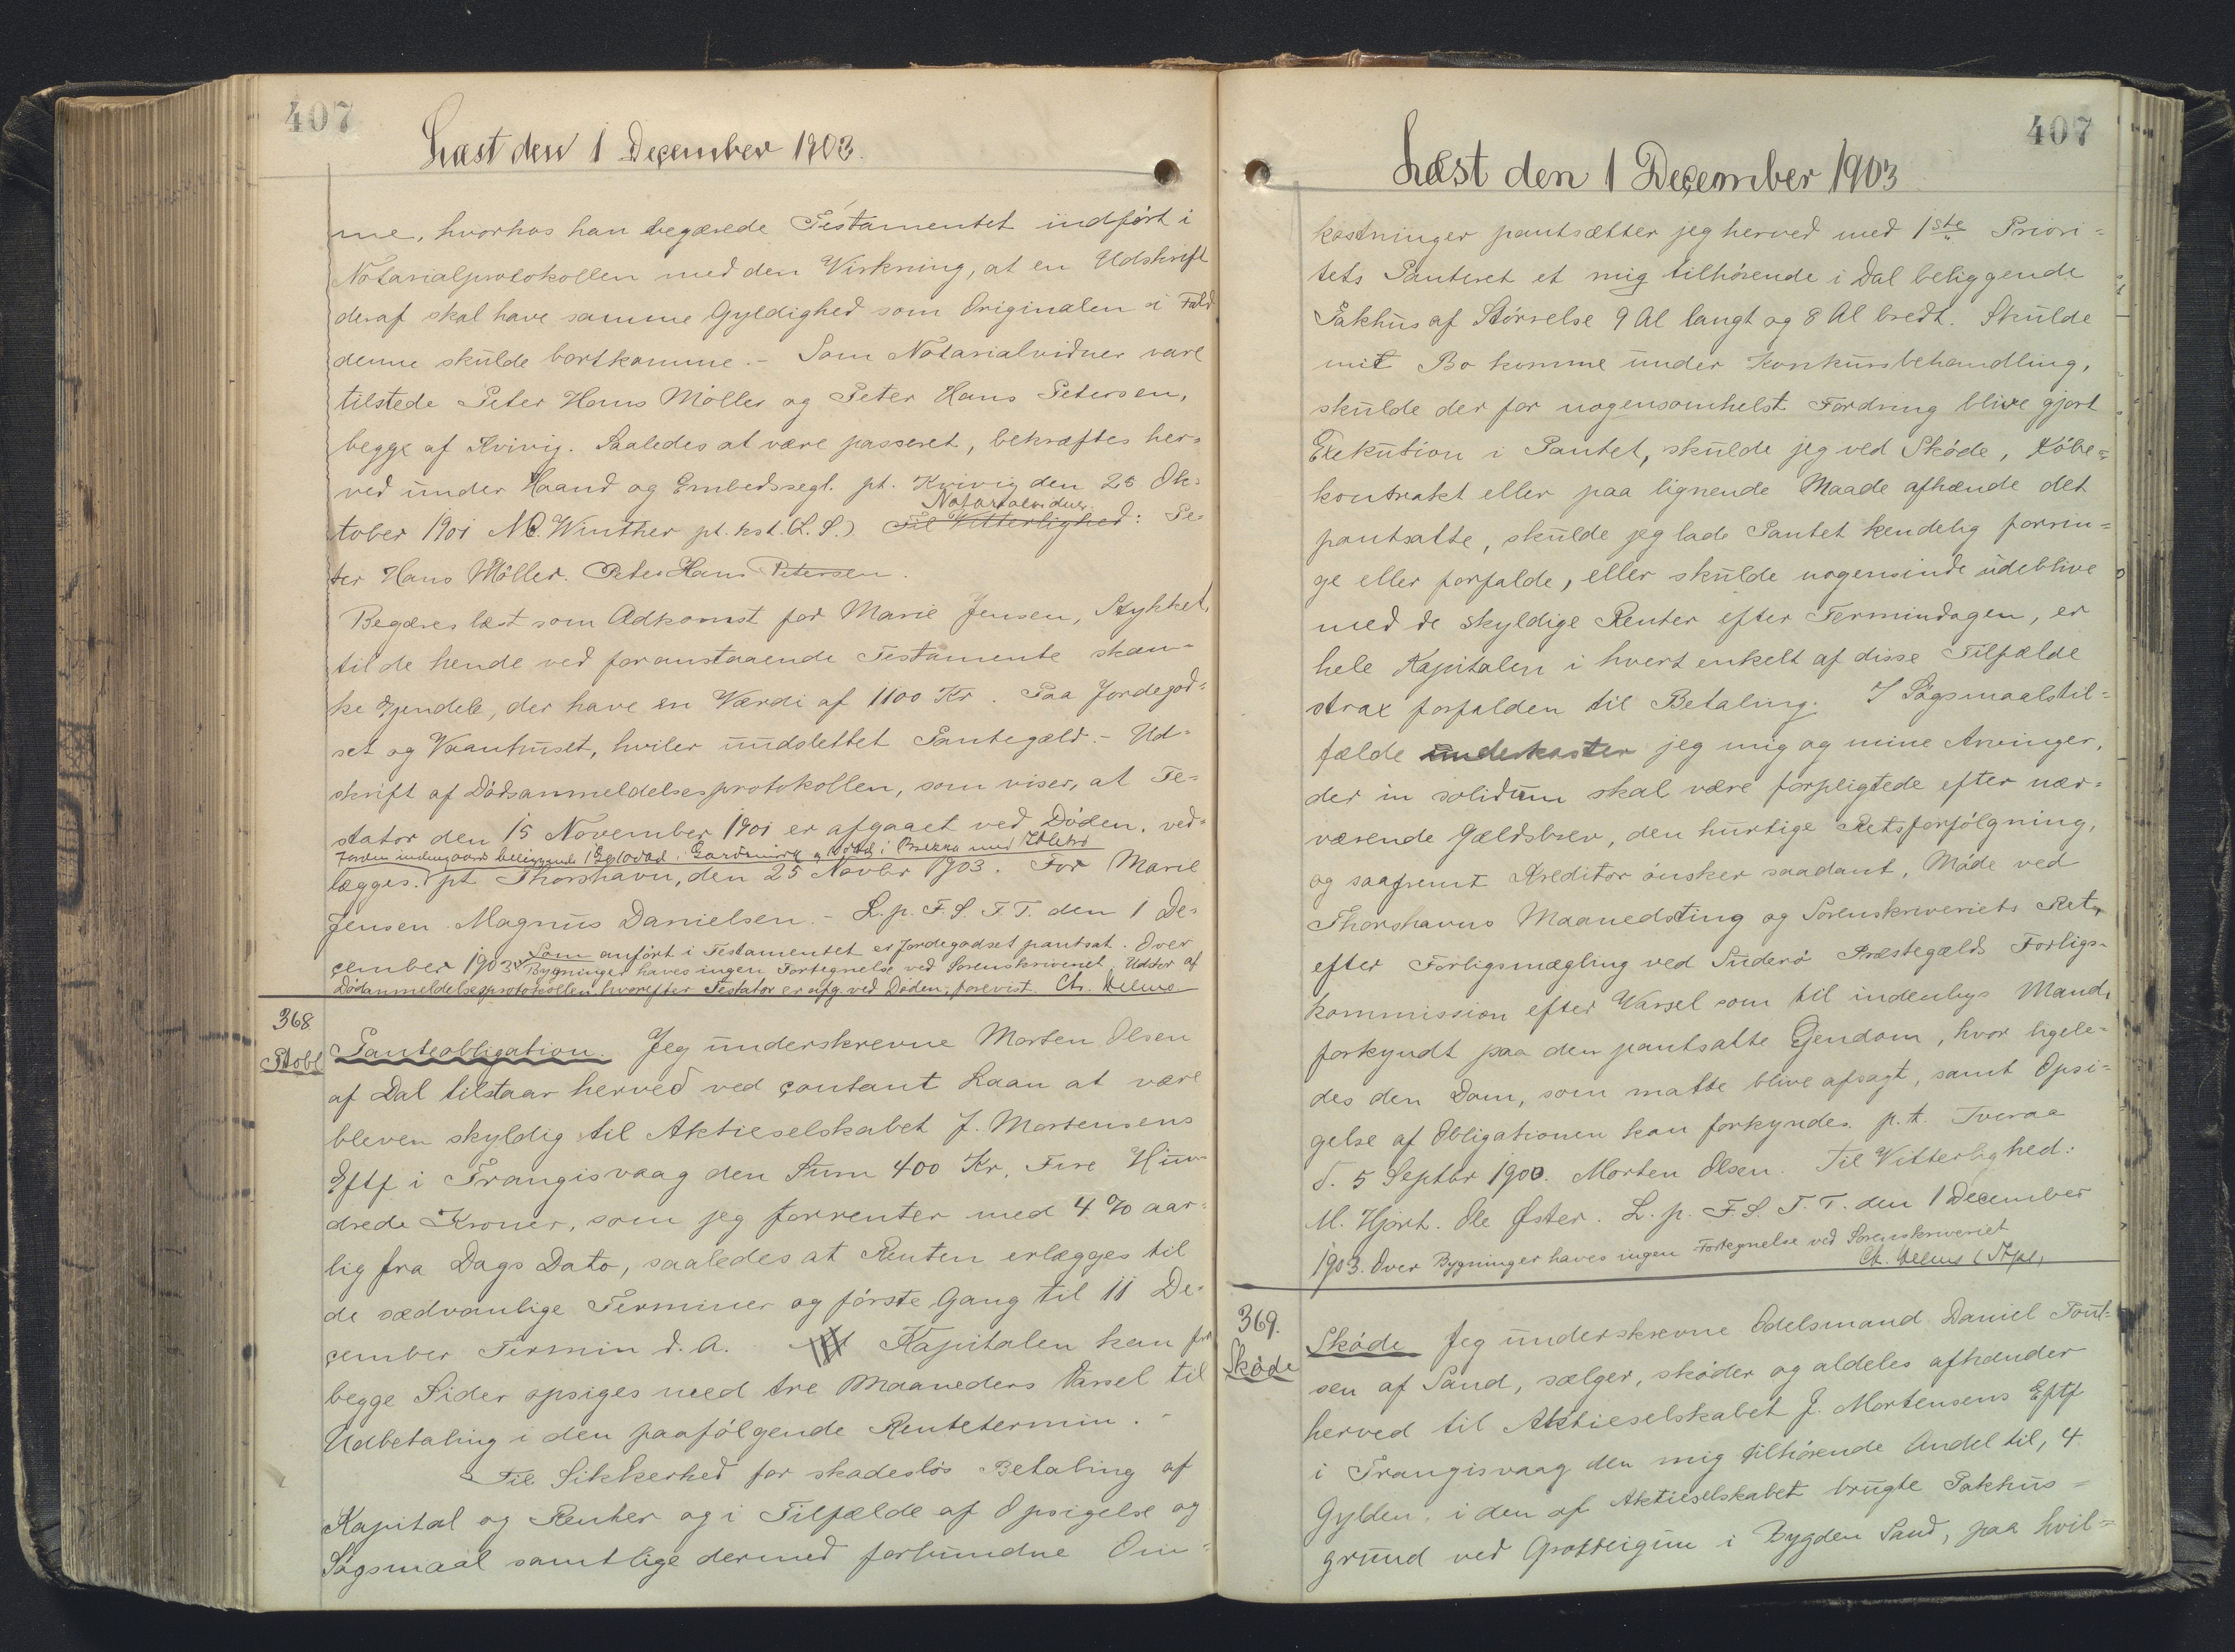 407
Læst den 1 December 1903.
me, hvorhos han begærede Testamentet indført i
Notarialprotokollen med den Virkning, at en Udskrift
deraf skal have samme Gyldighed som Originalen i Fald
denne skulde bortkomme. - Som Notarialvidner vare
tilstede Peter Hans Møller og Peter Hans Petersen,
begge af Kvivig. Saaledes at være passeret, bekræftes her=
ved under Haand og Embedssegl. pt. Kvivig den 25 Ok=
Notarialvidner.
tober 1901 M.C. Winther pt. kst. (L.S.) Til Vitterlighed: Pe=
ter Hans Møller. Peter Hans Petersen.
Begæres læst som Adkomst for Marie Jensen, Stykket,
til de hende ved foranstaaende Testamente skæn=
ke Ejendele, der have en Værdi af 1100 Kr. Paa Jordegod=
set og Vaanhuset, hviler uudslettet Pantegæld. - Ud=
skrift af Dødsanmeldelsesprotokollen, som viser, at Te=
stator den 15 November 1901 er afgaaet ved Døden, ved=
Jorden indengaards beliggende i
lægges. pt Thorshavn, den 25 Novbr 1903. For Marie
Jensen. Magnus Danielsen. - L. p. F. S. T. T. den 1 De=
cember 1903. Som anført i Testamentet er Jordegodset pantsat. Over
Bygninger haves ingen Fortegnelse ved Sorenskriveriet. Udskr af
Dødanmeldelsesprotokollen, hvorefter Testator er afg. ved Døden, forevist. Ch.
368
Ptobl
Panteobligation. Jeg underskrevne Morten Olsen
af Dal tilstaar herved ved contant Laan at være
bleven skyldig til Aktieselskabet J. Mortensens
Eftf i Trangisvaag den Sum 400 Kr, Fire Hun=
drede Kroner, som jeg forrenter med 4 % aar=
lig fra Dags Dato, saaledes at Renten erlægges til
de sædvanlige Terminer og første Gang til 11 De=
cember Termin d. A. Kapitalen kan fra
begge Sider opsiges med tre Maaneders Varsel til
Udbetaling i den paafølgende Rentetermin. -
Til Sikkerhed for skadesløs Betaling af
Kapital og Renter og i Tilfælde af Opsigelse og
Søgsmaal samtlige dermed forbundne Om=
407
Læst den 1 December 1903
kostninger pantsætter jeg herved med 1ste Priori=
tets Panteret et mig tilhørende i Dal beliggende
Pakhus af Størrelse 9 Al langt og 8 Al bredt. Skulde
mit Bo komme under Konkursbehandling,
skulde der for nogensomhelst Fordring blive gjort
Exekution i Pantet, skulde jeg ved Skøde, Købe=
kontrakt eller paa lignende Maade afhænde det
pantsatte, skulde jeg lade Pantet kendelig forrin=
ge eller forfalde, eller skulde nogensinde udeblive
med de skyldige Renter efter Termindagen, er
hele Kapitalen i hvert enkelt af disse Tilfælde
strax forfalden til Betaling. I Søgsmaalstil=
fælde underkaster jeg mig og mine Arvinger,
der in solidum skal være forpligtede efter nær=
værende Gældsbrev, den hurtige Retsforfølgning,
og saafremt Kreditor ønsker saadant, Møde ved
Thorshavns Maanedsting og Sorenskriveriets Ret,
efter Forligsmægling ved Suderø Præstegælds Forligs=
kommission efter Varsel som til indenbys Mand,
forkyndt paa den pantsatte Ejendom, hvor ligele=
des den Dom, som matte blive afsagt, samt Opsi=
gelse af Obligationen kan forkyndes. p.t. Tveraa
d. 5 Septbr 1900. Morten Olsen. Til Vitterlighed:
M. Hjort. Ole Øster. L. p. F. S. T. T. den 1 December
1903. Over Bygninger haves ingen Fortegnelse ved Sorenskriveriet
Ch.
369.
Skøde
Skøde Jeg underskrevne Odelsmand Daniel Poul=
sen af Sand, sælger, skøder og aldeles afhænder
herved til Aktieselskabet J. Mortensens Eftf
i Trangisvaag den mig tilhørende Andel til, 4
Gylden, i den af Aktieselskabet brugte Pakhus=
grund ved i Bygden Sand, paa hvil=